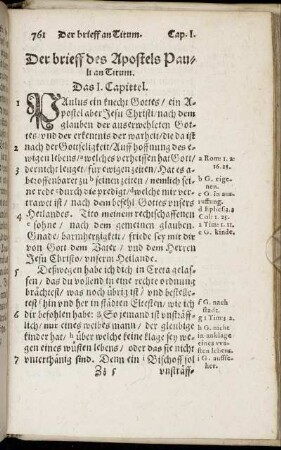 761 Der brieff an Titum. Cap. I.
Der brieff des Apostels Pau-
li an Titum.
Das I. Capittel.
1 PAulus ein knecht Gottes / ein A-
postel aber Jesu Christi / nach dem
glauben der auserwehleten Got-
tes / und der erkentnis der warheit / die da ist
2 nach der Gotseligkeit / Auff hoffnung des e-
wigen lebens / a welches verheissen hat Gott /
3 der nicht leuget / für ewigen zeiten / Hat es a-
ber offenbaret zu b seinen zeiten / nemlich sei-
ne rede c durch die predigt / d welche mir ver-
trawet ist / nach dem befehl Gottes unsers
4 Heilandes. Tito meinem rechtschaffenen
e sohne / nach dem gemeinen glauben.
Gnade / barmhertzigkeit / friede sey mir dir
von Gott dem Vater / und dem Herren
Jesu Christo / unserm Heilande.
5 Deßwegen habe ich dich in Creta gelas-
sen / das du vollend in eine rechte ordnung
brächtest / was noch übrig ist / und bestelle-
test hin und her in städten Eltesten / wie ich
6 dir befohlen habe: g So jemand ist unsträff-
lich / nur eines weibes mann / der gleubige
kinder hat / h über welche keine klage sey we-
gen eines wüsten lebens / oder das sie nicht
7 unterthänig sind. Denn ein i Bischoff sol
Zz 5 unsträff-
a Rom: 1. 2:
16. 25.
b G. eige-
nen.
c G. in aus-
ruffung.
d Ephes: 3.
Col: 1. 25.
1 Tim: 1. 11.
e G. kinde.
f G. nach
stadt.
g 1 Tim: 3. 2.
h G. nicht
in anklage
eines wü-
sten lebens.
i G. auffse-
her.